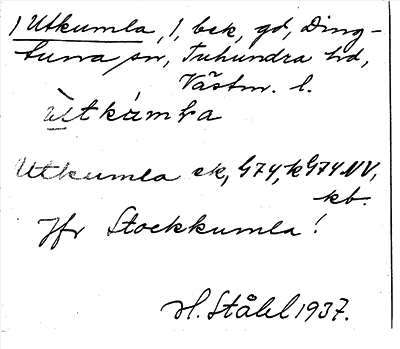 1 Utkumla, 1, bsk, gd, Ding-
tuna sn, Tuhundra hd,
Västm. l.
Utkumla ek, G74, k G74 NV,
kb.
Jfr Stockkumla!
H. Ståhl 1937.